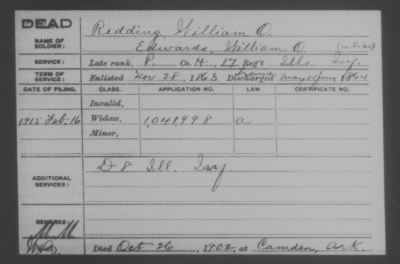 DEAD
NAME OF SOLDIER: Redding, William O.
Edwards, William O. (alias)
SERVICE: Late rank, P. Co. H, 17 Reg't Ills. Inf.
TERM OF SERVICE: Enlisted Nov. 28, 1863 Discharged 1864
DATE OF FILING. CLASS. APPLICATION NO. LAW. CERTIFICATE NO.
Invalid,
1915 Feb-16 Widow, 1,041,998 a
Minor,
ADDITIONAL SERVICES: D 8 Ill. Inf.
REMARKS:
Died Oct 26, 1902, at Camden, Ark.